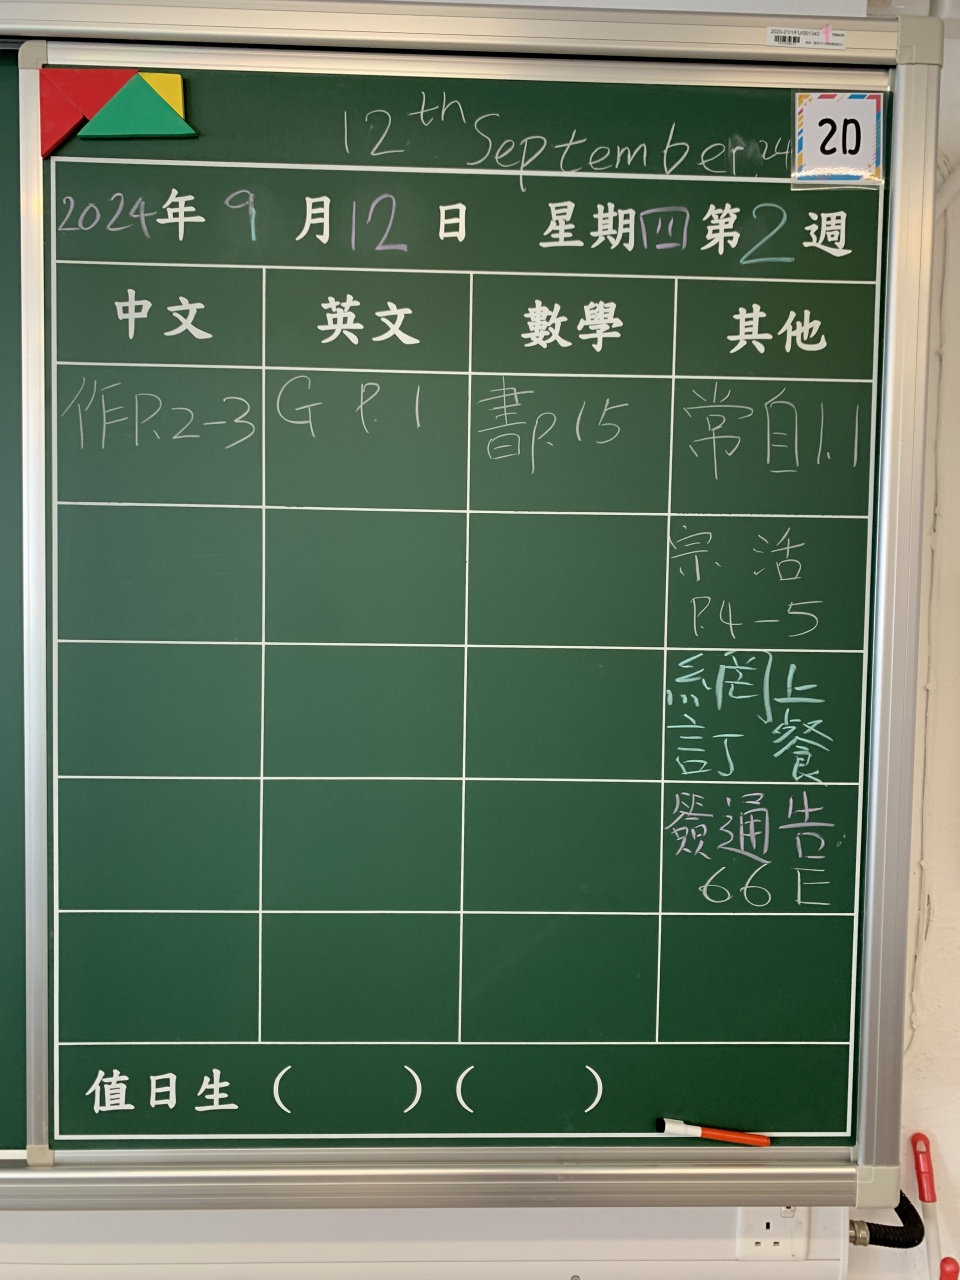 12th September, 24
2D
2024年9月12日 星期四第2週
中文 英文 數學 其他
作P.2-3 G P.1 書P.15 常自1.1
宗 活
P.4-5
網上
訂餐
簽通告
66E
值日生 ( ) ( )